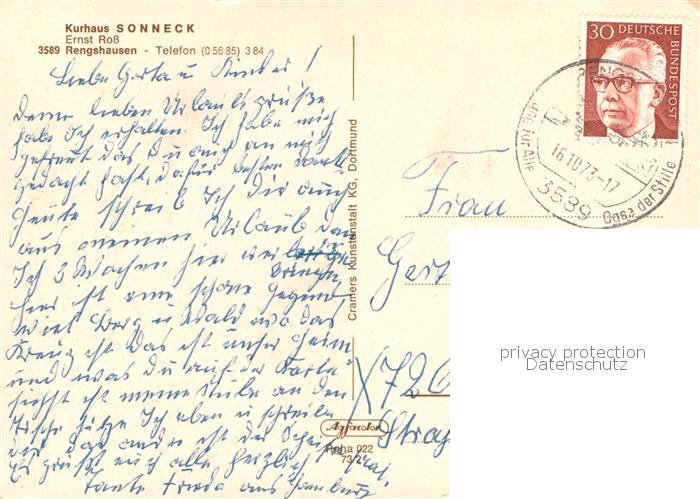 Kurhaus SONNECK
Ernst Roß
3589 Rengshausen - Telefon (0 56 85) 3 84
Liebe Gerta u Kinder!
Deine lieben Urlaubsgrüße
habe Ich erhalten. Ich habe mich
gefreut das Du auch an mich
gedacht hast, dafür besten Dank
heute schreib Ich Dir auch
aus meinen Urlaub den
Ich 3 Wochen hier
hier ist eine schöne Gegend
viel Berg u Wald wo das
Kreuz ist das ist unser Heim
und was Du auf der Karte
siehst ist meine Stube an den
Tische sitze Ich eben u schreibe
dir das andere ist der
Es grüßt euch alle herzlich
Tante Frieda aus Hamburg
Cramers Kunstanstalt KG, Dortmund
Agfacolor
Reha 022
73/2
30 DEUTSCHE BUNDESPOST
16.10.73-17
3589
Oase der Stille
Frau
Gert
X 726
Straß
privacy protection
Datenschutz